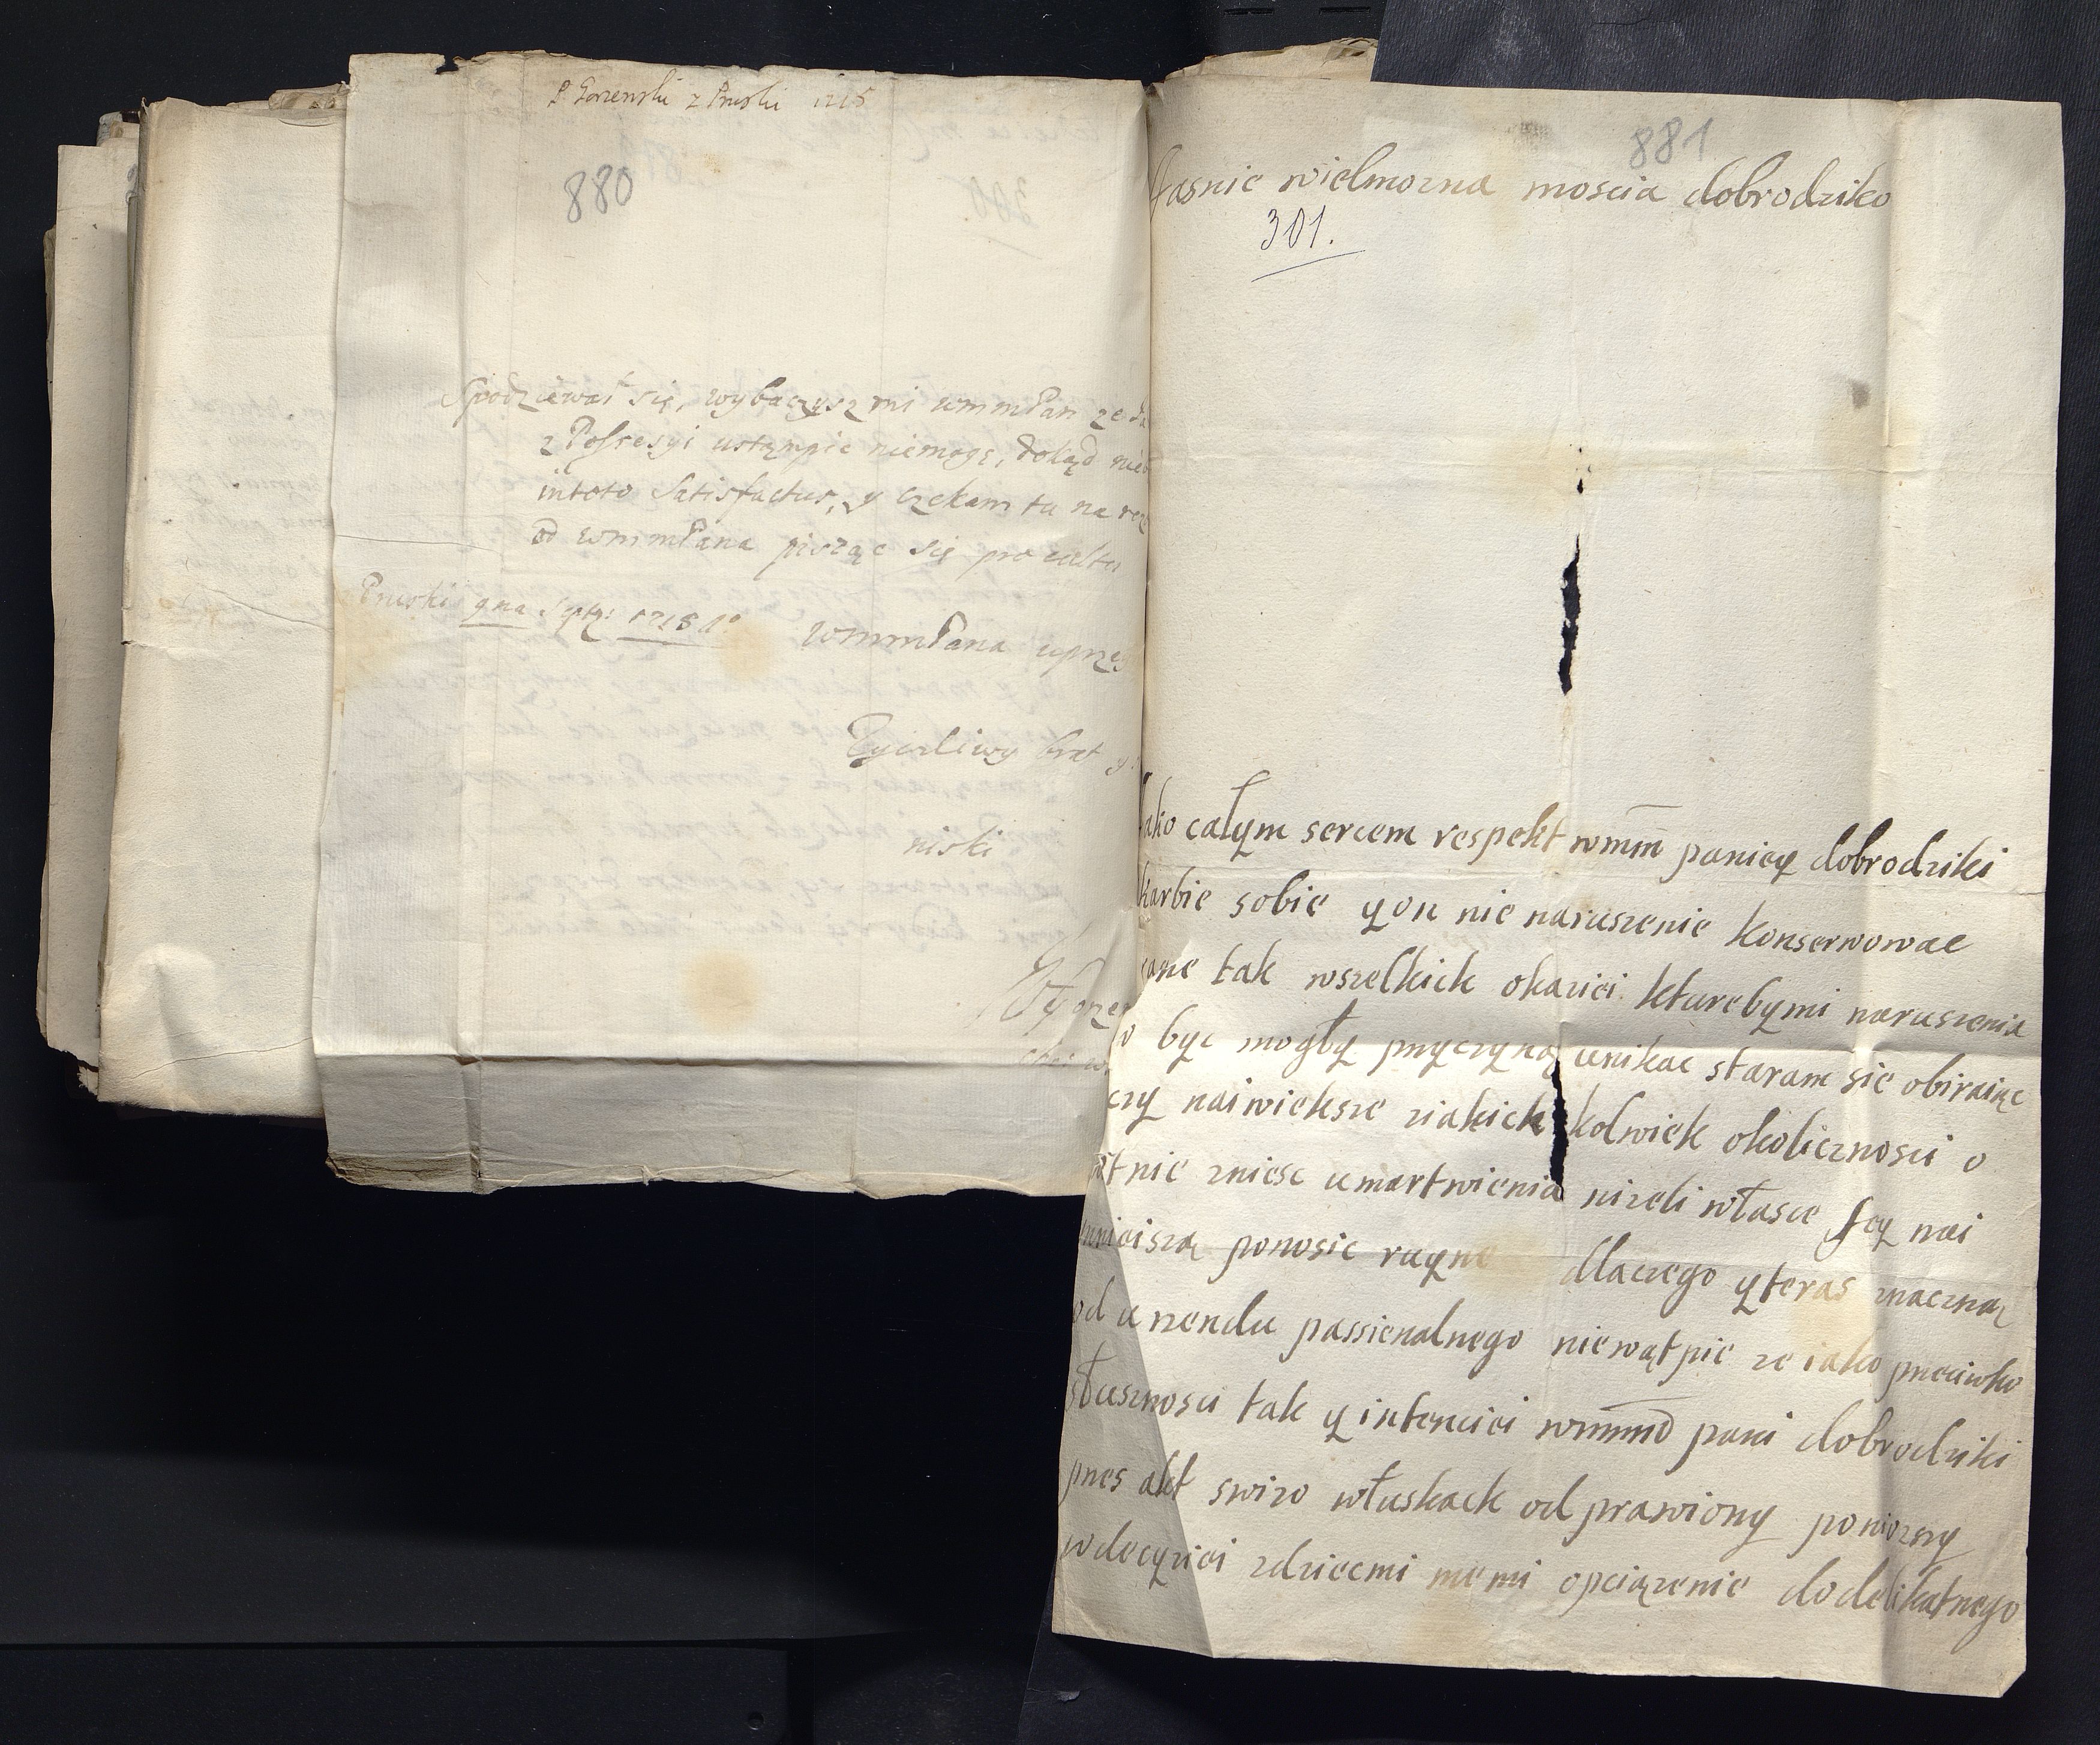 P. Gorzenski z Pruski 1715
880
Spodziewaś się, wybaczysz mi wmmPan ze
z Possesyi ustąmpic niemogę, dokąd nie
intoto Satisfactus, y czekam tu na
od wmmPana pisząc się pro cultu
Pruski 9na Septr: 1715 A°
wmmPana uprzey
Zyczliwy brat y
niski
881
Jasnie wielmozna moscia dobrodziko
301.
Jako całym sercem respekt wmm paniey dobrodziki
karbie sobie y on nie naruszenie konserwowac
tak wszelkich okaziei kturebymi naruszenia
być mogły pryczyną unikac staram sie obiraiąc
czy naiwieksze ziakich kolwiek okolicznosci o
nie zniesc umartwienia nizeli własce Jey nai
mnieiszą ponosic ruynę dlaczego y teras znaczną
od urzendu passienalnego niewątpie ze iako preciwko
słusznosci tak y intenciei wmmd pani dobrodziki
pres akt swizo włuskach odprawiony
wdecyziei zdziecmi memi opciązenie dodelikatnego